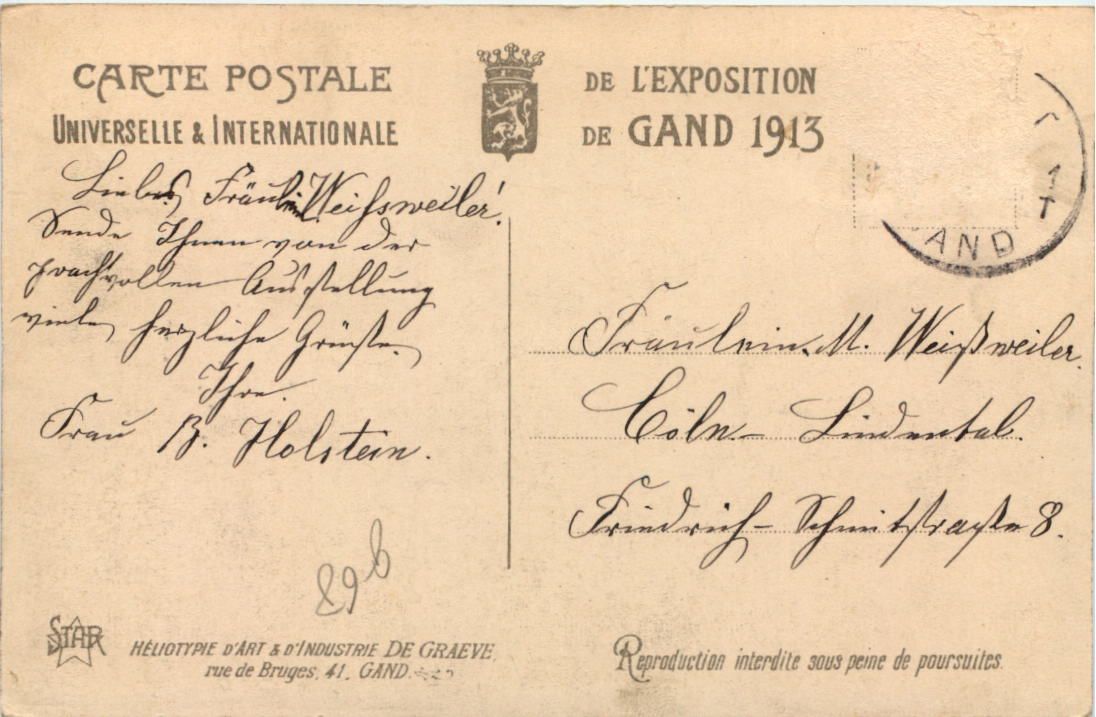 CARTE POSTALE
UNIVERSELLE & INTERNATIONALE
DE L'EXPOSITION
DE GAND 1913
Liebes Fräulein Weissweiler!
Sende Ihnen von der
prachtvollen Ausstellung
viele herzliche Grüsse.
Ihre.
Frau B. Holstein.
AND
1
T
Fräulein. M. Weißweiler.
Cöln - Lindental.
Friedrich - Schmitstraße 8.
89 b
STAR
HÉLIOTYPIE D'ART & D'INDUSTRIE DE GRAEVE
rue de Bruges, 41, GAND.
Reproduction interdite sous peine de poursuites.